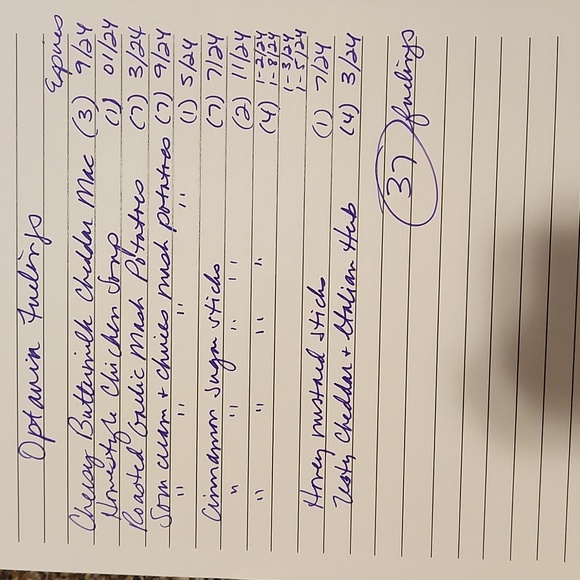 Optavia Fuelings
Expires
Cheesy Buttermilk Cheddar Mac (3) 9/24
Homestyle Chicken Soup (1) 01/24
Roasted Garlic Mash Potatoes (7) 3/24
Sour cream + chives mash potatoes (7) 9/24
" " " " (1) 5/24
Cinnamon Sugar sticks (7) 7/24
" " " " (2) 11/24
" " " " (4) 1-2/24
1-8/24
1-3/24
1-5/24
Honey mustard sticks (1) 7/24
Zesty Cheddar + Italian Herb (4) 3/24
37 fuelings